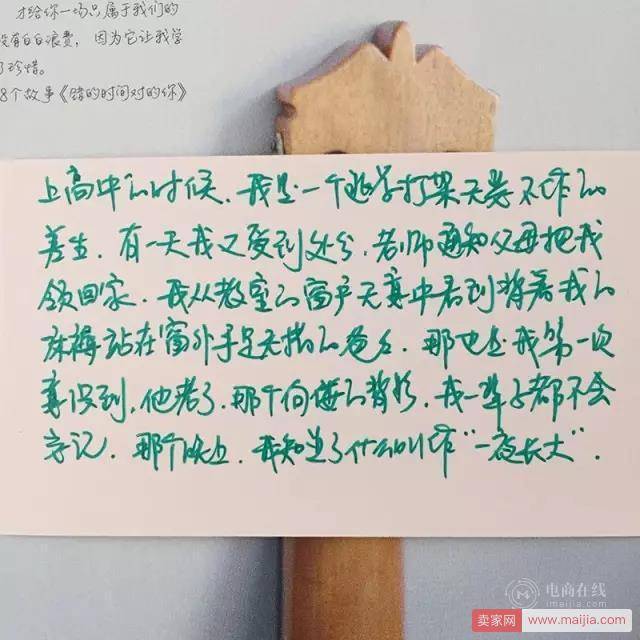 才给你一场只属于我们的
没有白白浪费，因为它让我学
了珍惜。
8个故事《错的时间对的你》
上高中的时候，我是一个逃学打架无恶不作的
差生，有一天我又受到处分，老师通知父母把我
领回家，我从教室的窗户无意中看到背着我的
站在窗外手足无措的爸爸，那也是我第一次
意识到，他老了，那个佝偻的背影，我一辈子都不会
忘记，那个晚上，我知道了什么叫作“一夜长大”.
电商在线
imaijia.com
卖家网 www.maijia.com